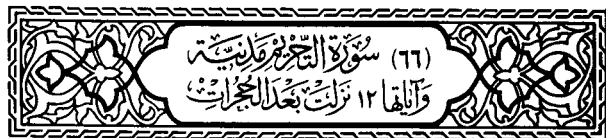 (٦٦) سُورَةُ التَّحْرِيمِ مَدَنِيَّةٌ
وَآيَاتُهَا ١٢ نَزَلَتْ بَعْدَ الحُجُرَاتِ